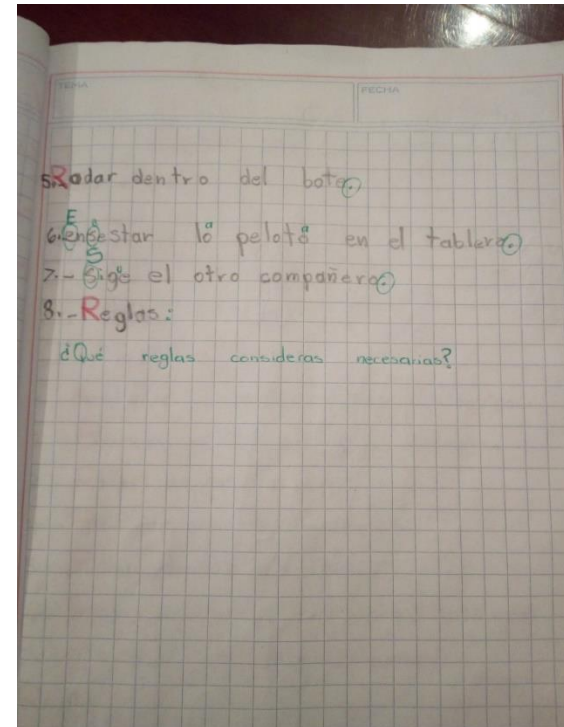 TEMA FECHA
5.-Rodar dentro del bote.
6.-Ensestar la pelota en el tablero.
7.-Sige el otro compañero.
8.-Reglas:
¿Qué reglas consideras necesarias?